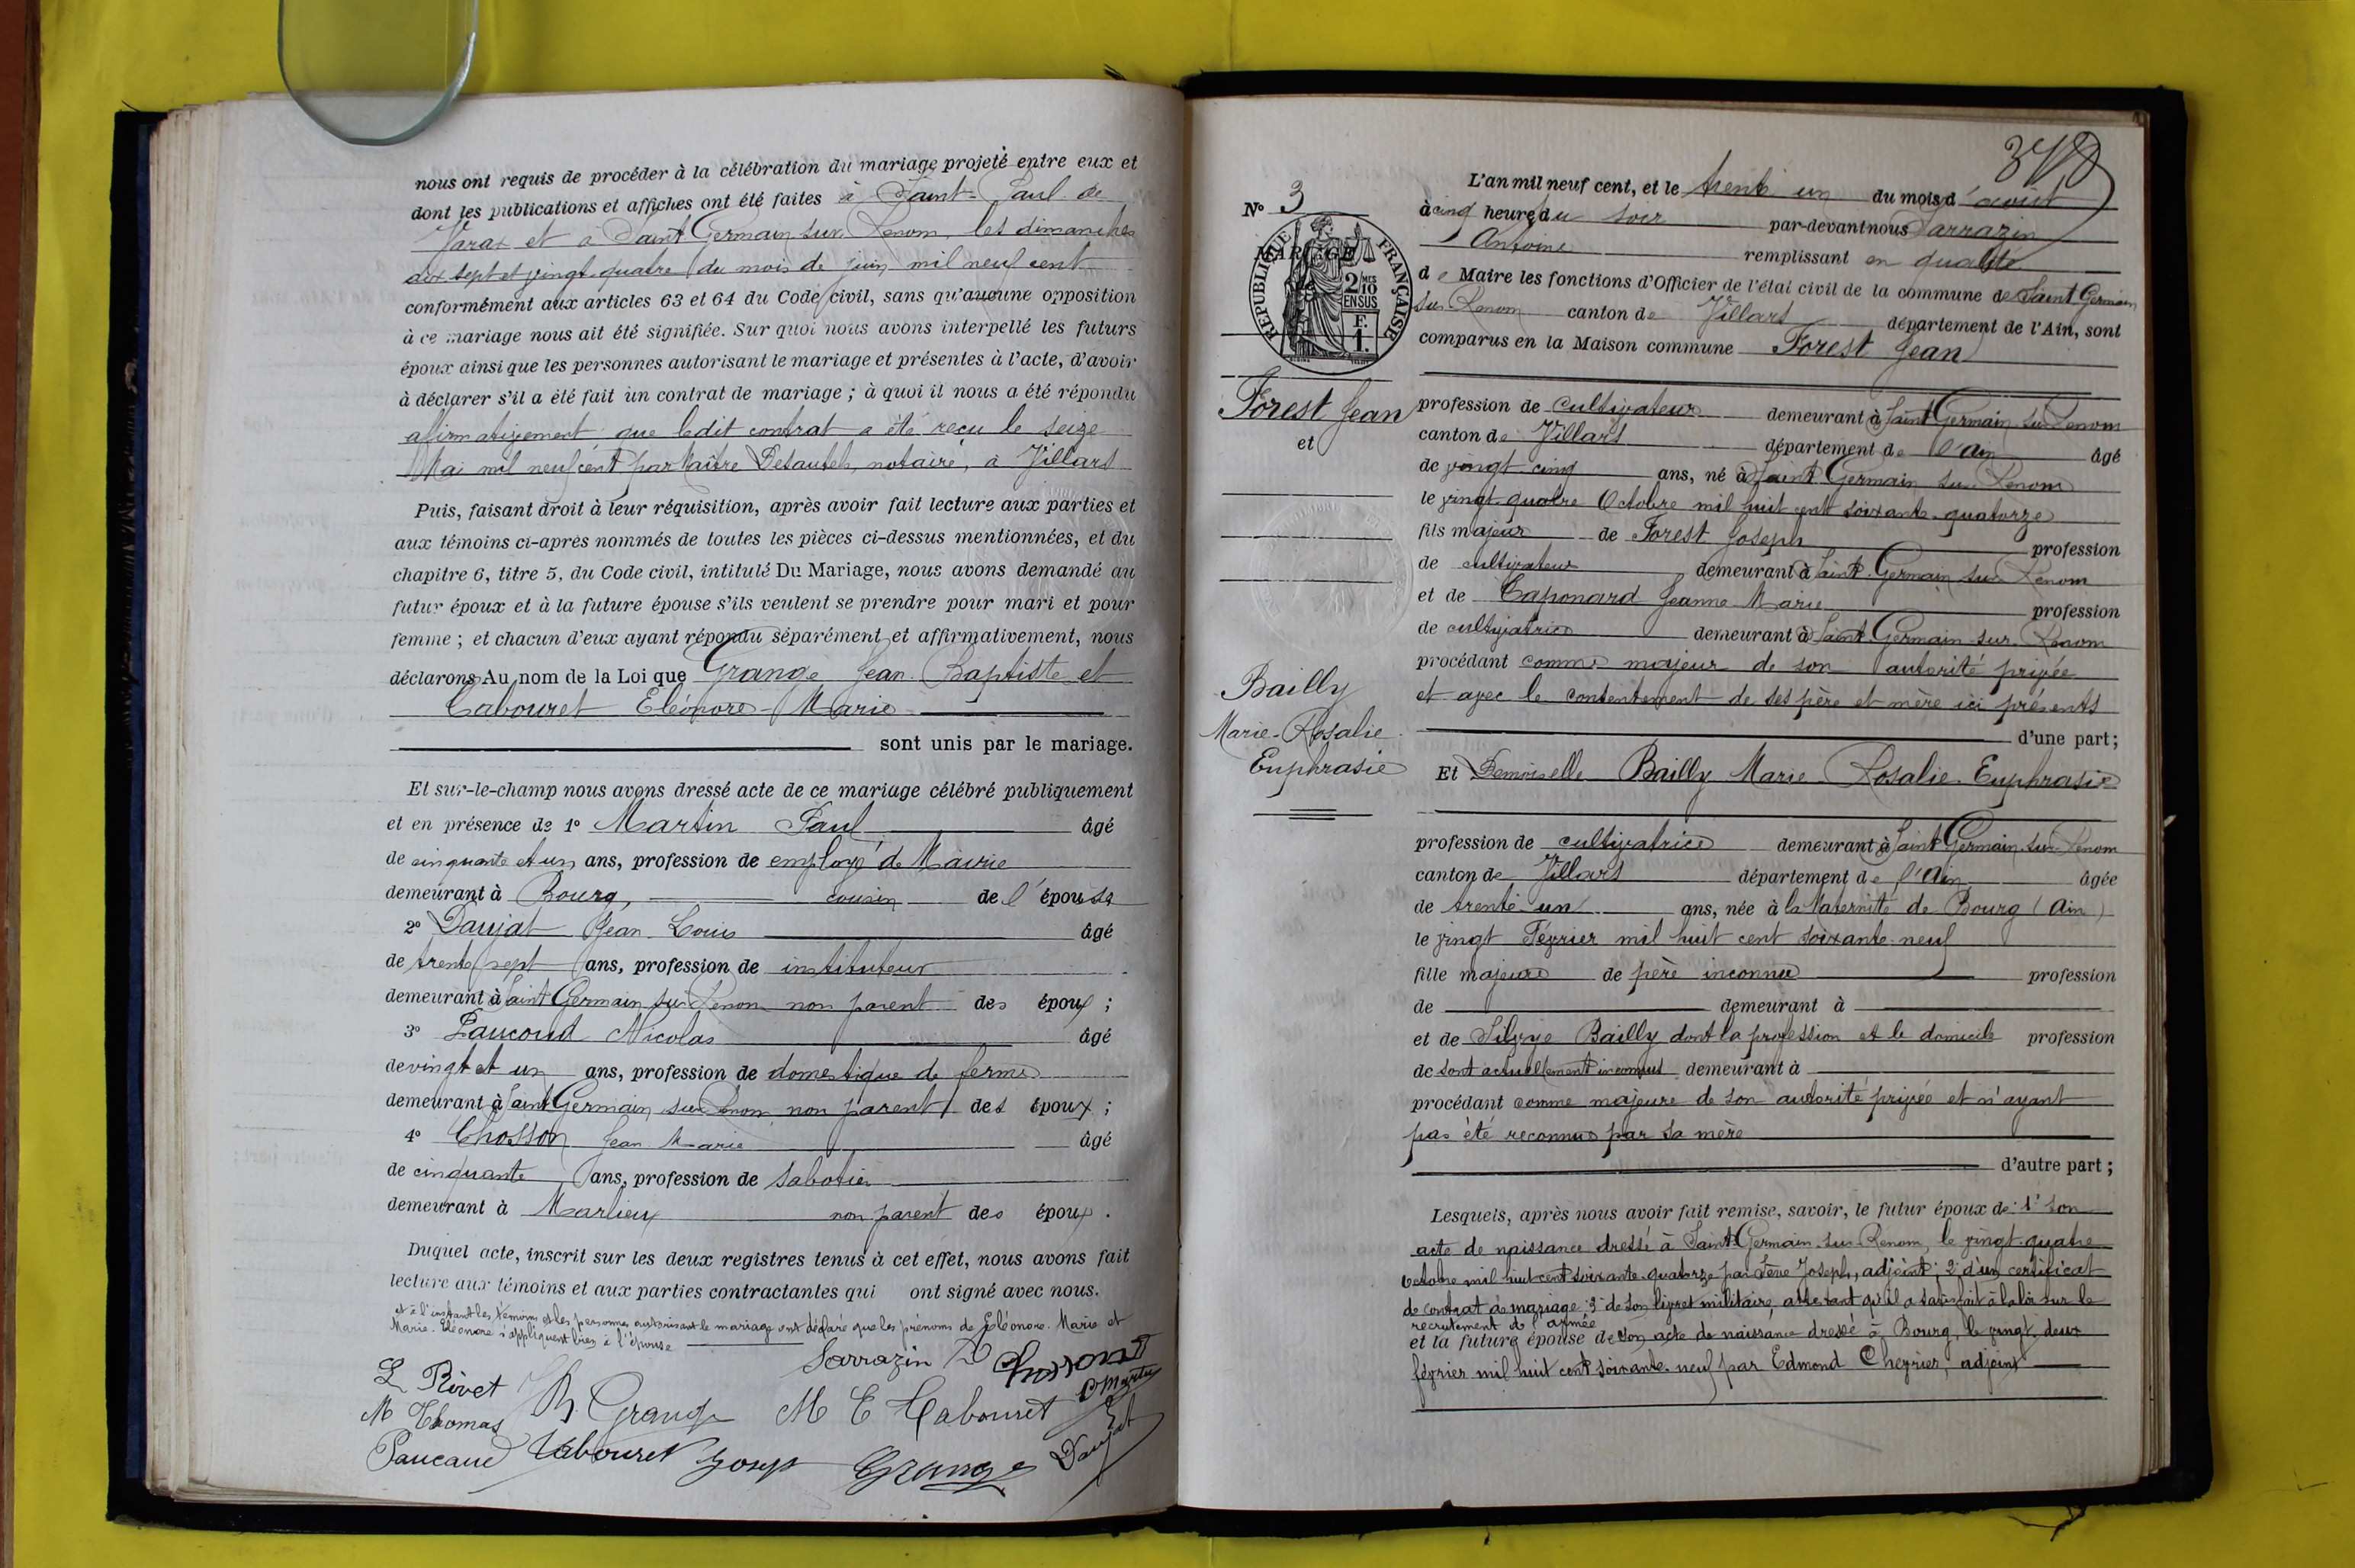 nous ont requis de procéder à la célébration du mariage projeté entre eux et
dont les publications et affiches ont été faites à Saint-Paul de
Varax et à Saint Germain sur Renom, les dimanches
dix sept et vingt-quatre du mois de juin mil neuf cent
conformément aux articles 63 et 64 du Code civil, sans qu'aucune opposition
à ce mariage nous ait été signifiée. Sur quoi nous avons interpellé les futurs
époux ainsi que les personnes autorisant le mariage et présentes à l'acte, d'avoir
à déclarer s'il a été fait un contrat de mariage ; à quoi il nous a été répondu
afirmativement que ledit contrat a été reçu le seize
Mai mil neuf cent par Maître Desautels, notaire, à Villars
Puis, faisant droit à leur réquisition, après avoir fait lecture aux parties et
aux témoins ci-après nommés de toutes les pièces ci-dessus mentionnées, et du
chapitre 6, titre 5, du Code civil, intitulé Du Mariage, nous avons demandé au
futur époux et à la future épouse s'ils veulent se prendre pour mari et pour
femme ; et chacun d'eux ayant répondu séparément et affirmativement, nous
déclarons Au nom de la Loi que Grange Jean-Baptiste et
Cabouret Eléonore-Marie
sont unis par le mariage.
Et sur-le-champ nous avons dressé acte de ce mariage célébré publiquement
et en présence de 1° Martin Paul âgé
de cinquante et un ans, profession de employé de Mairie
demeurant à Bourg, cousin de l'épouse
2° Daujat Jean-Louis âgé
de trente sept ans, profession de instituteur
demeurant à Saint Germain sur Renom non parent des époux ;
3° Paucoud Nicolas âgé
de vingt et un ans, profession de domestique de ferme
demeurant à Saint Germain sur Renom non parent des époux ;
4° Chosson Jean Marie âgé
de cinquante ans, profession de sabotier
demeurant à Marlieux non parent des époux.
Duquel acte, inscrit sur les deux registres tenus à cet effet, nous avons fait
lecture aux témoins et aux parties contractantes qui ont signé avec nous.
et à l'instant les témoins et les personnes autorisant le mariage ont déclaré que les prénoms de Eléonore-Marie et
Marie-Eléonore s'appliquent bien à l'épouse
Sarrazin Chosson
L Rivet P Martin
M Thomas Grange M E Cabouret
Paucaud Cabouret Josep Grange Daujat
348
N° 3
MARIAGE
RÉPUBLIQUE FRANÇAISE
2/10 MES
EN SUS
F.
1.
Forest Jean
et
Bailly
Marie-Rosalie
Euphrasie
L'an mil neuf cent, et le trente un du mois d'août
à cinq heures du soir par-devant nous Sarrazin
Antoine remplissant en qualité
de Maire les fonctions d'Officier de l'état civil de la commune de Saint Germain
sur Renom canton de Villars département de l'Ain, sont
comparus en la Maison commune Forest Jean
profession de cultivateur demeurant à Saint Germain sur Renom
canton de Villars département de l'Ain âgé
de vingt-cinq ans, né à Saint Germain sur Renom
le vingt-quatre Octobre mil huit cent soixante-quatorze
fils majeur de Forest Joseph profession
de cultivateur demeurant à Saint-Germain sur Renom
et de Caponard Jeanne-Marie profession
de cultivatrice demeurant à Saint-Germain-sur-Renom
procédant comme majeur de son autorité privée
et avec le contentement de ses père et mère ici présents
d'une part ;
Et Demoiselle Bailly Marie-Rosalie-Euphrasie
profession de cultivatrice demeurant à Saint Germain sur Renom
canton de Villars département de l'Ain âgée
de trente-un ans, née à la Maternité de Bourg (Ain)
le vingt Février mil huit cent soixante-neuf
fille majeure de père inconnu profession
de demeurant à
et de Silvye Bailly dont la profession et le domicile profession
de sont actuellement inconnus demeurant à
procédant comme majeure de son autorité privée et n'ayant
pas été reconnue par sa mère
d'autre part ;
Lesquels, après nous avoir fait remise, savoir, le futur époux de : 1° son
acte de naissance dressé à Saint-Germain-sur-Renom, le vingt-quatre
Octobre mil huit cent soixante-quatorze par Joseph, adjoint ; 2° d'un certificat
de contrat de mariage 3° de son livret militaire, attestant qu'il a satisfait à la loi sur le
recrutement de l'armée
et la future épouse de son acte de naissance dressé à Bourg, le vingt-deux
février mil huit cent soixante-neuf par Edmond Chevrier, adjoint